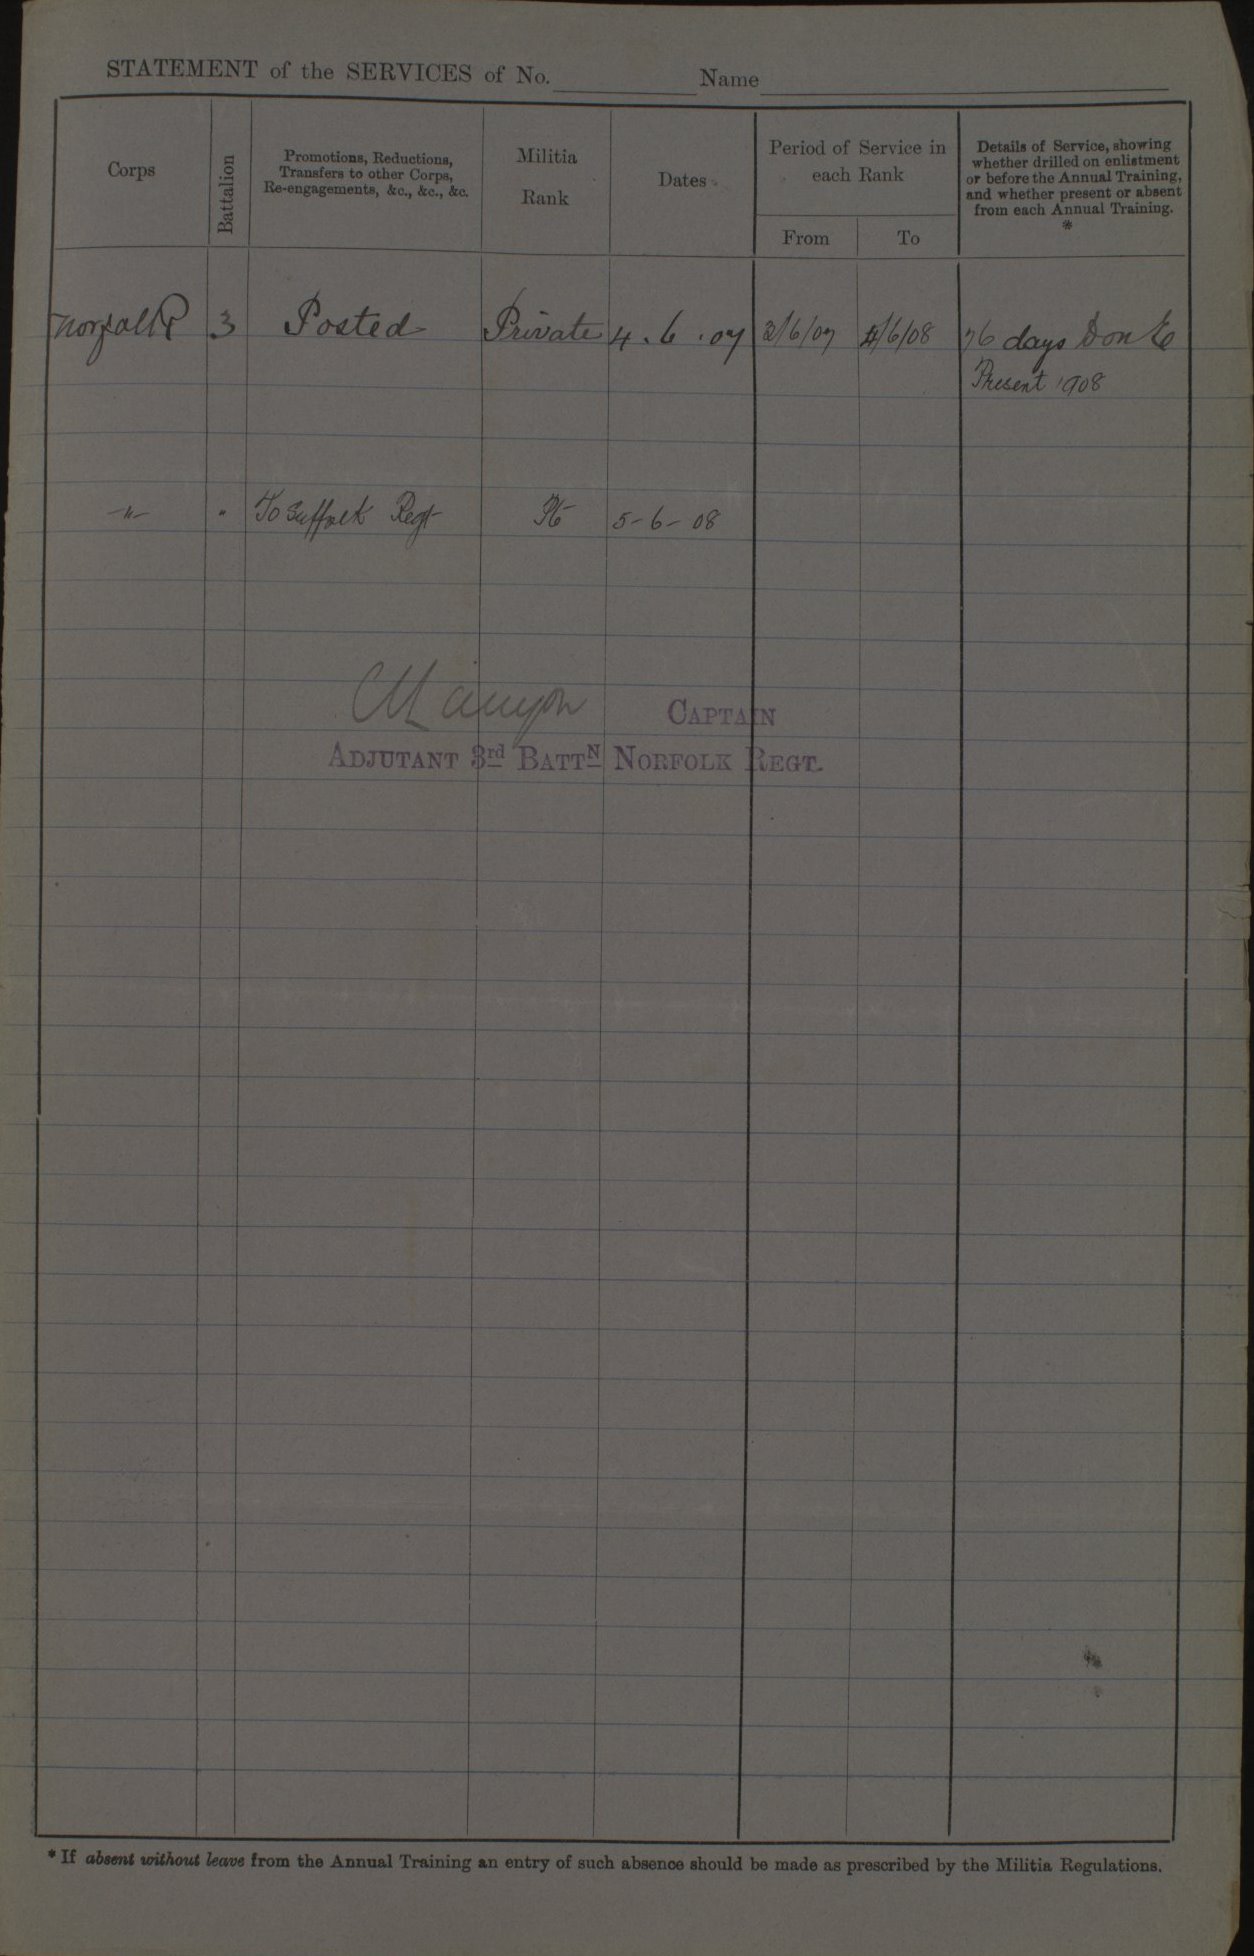 STATEMENT of the SERVICES of No. Name
Corps
Battalion
Promotions, Reductions,
Transfers to other Corps,
Re-engagements, &c., &c., &c.
Militia
Rank
Dates
Period of Service in
each Rank
From
To
Details of Service, showing
whether drilled on enlistment
or before the Annual Training,
and whether present or absent
from each Annual Training.
*
Norfolk R 3 Posted Private 4.6.07 3/6/07 4/6/08 76 days Don E
Present 1908
-"- " To Suffolk Regt Pte 5-6-08
CAPTAIN
ADJUTANT 3rd BATTN NORFOLK REGT.
* If absent without leave from the Annual Training an entry of such absence should be made as prescribed by the Militia Regulations.